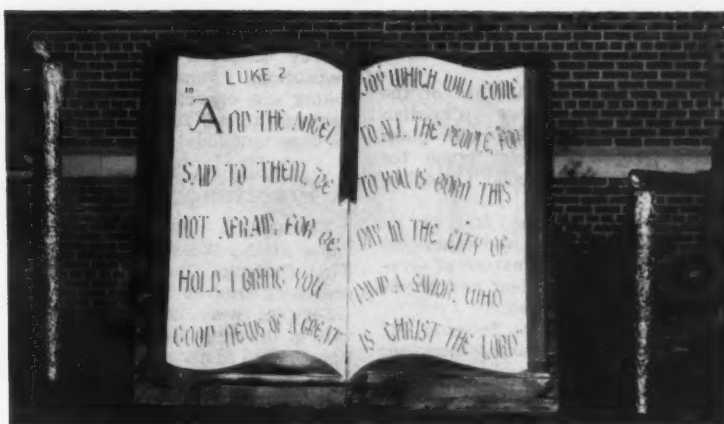 LUKE 2
10
"AND THE ANGEL
SAID TO THEM, BE
NOT AFRAID, FOR BE-
HOLD, I BRING YOU
GOOD NEWS OF A GREAT
JOY WHICH WILL COME
TO ALL THE PEOPLE, FOR
TO YOU IS BORN THIS
DAY IN THE CITY OF
DAVID A SAVIOR, WHO
IS CHRIST THE LORD"